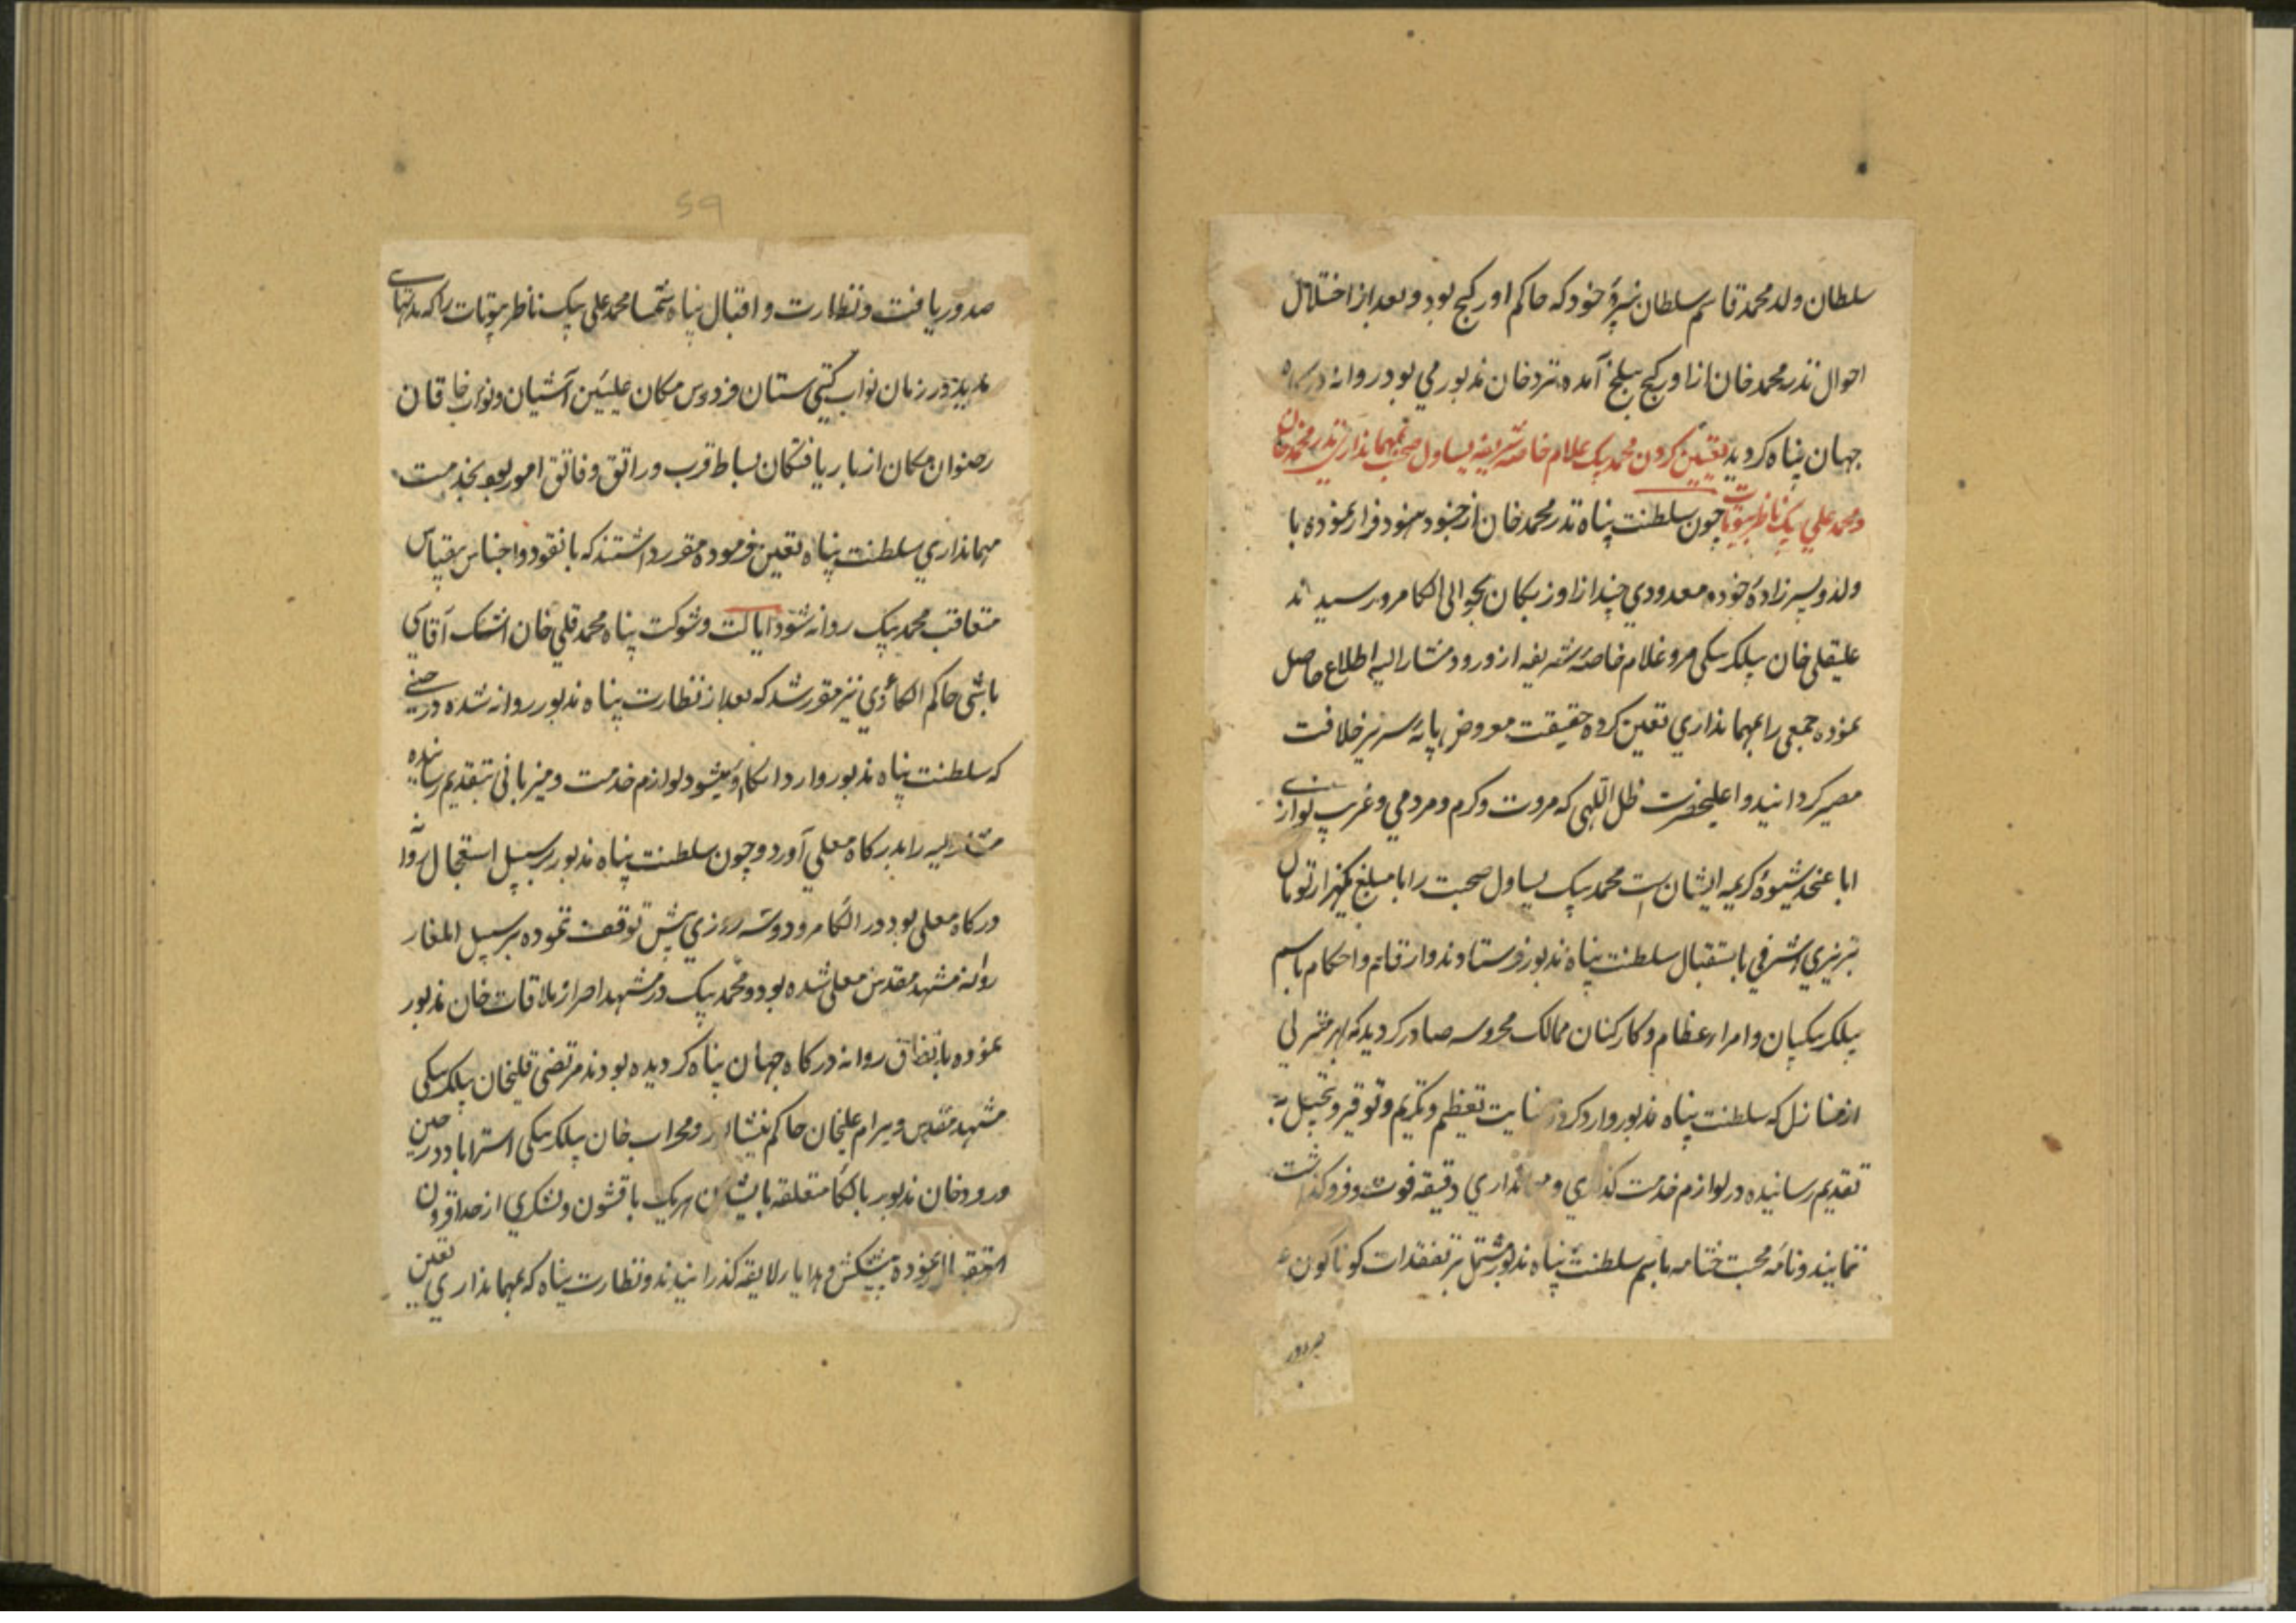 سلطان ولد محمد قاسم سلطان نبیرۀ خود که حاکم اورکنج بود و بعد از اختلال
احوال نذر محمد خان از اورکنج ببلخ آمده نزد خان مذبور می بود روانۀ درکاه
جهان پناه کردید تعیین کردن محمد بیک غلام خاصه شریفه یساول صحبت بمهمانداری نذر محمد خان
و محمد علی بیک ناظر بیوتات چون سلطنت پناه نذر محمد خان از جنود هنود فرار نموده با
ولد و پسرزادۀ خود و معدودی چند از اوزبکان بحوالی الکا مرو رسیدند
علیقلی خان بیلکربیکی مرو غلام خاصۀ شریفه از ورود مشار الیه اطلاع حاصل
نموده جمعی را بمهمانداری تعین کرده حقیقت معروض پایۀ سریر خلافت
مصیر کردانید و اعلیحضرت ظل اللهی که مروت و کرم و مردمی و غریب نوازی
ابا عنجد شیوۀ کریمه ایشان است محمد بیک یساول صحبت را با مبلغ یکهزار تومان
تبریزی اشرفی باستقبال سلطنت پناه مذبور فرستادند و ارقام و احکام باسم
بیلکربیکیان و امراء عظام و کارکنان ممالک محروسه صادر کردید که بهر منزلی
از منازل که سلطنت پناه مذبور وارد کردد نهایت تعظیم و تکریم و توقیر و تبجیل به
تقدیم رسانیده در لوازم خدمت کذاری و مهمانداری دقیقه فوت و فروکذاشت
ننمایند و نامۀ محبت ختامه باسم سلطنت پناه مذبور مشتمل بر تفقدات کوناکون
59
صدور یافت و نظارت و اقبال پناه محمد علی بیک ناظر بیوتات را که مدتهای
مدید در زمان نواب کیتی ستان فردوس مکان علیین آشیان و نواب خاقان
رضوان مکان از بار یافتکان بساط قرب و راتق و فاتق امور بود بخدمت
مهمانداری سلطنت پناه تعین فرموده مقرر داشتند که با نقود و اجناس بیقیاس
متعاقب محمد بیک روانه شود ایالت و شوکت پناه محمد قلی خان اشک آقاسی
باشی حاکم الکا ری نیز مقرر شد که بعد از نظارت پناه مذبور روانه شده در حینی
که سلطنت پناه مذبور وارد الکا ری میشود لوازم خدمت و میزبانی بتقدیم رسانیده
مشار الیه را بدرکاه معلی آورد و چون سلطنت پناه مذبور بر سبیل استعجال روانۀ
درکاه معلی بود در الکا مرو دو سه روزی بیش توقف ننموده بر سبیل ایلغار
روانه مشهد مقدس معلی شده بود و محمد بیک در مشهد احراز ملاقات خان مذبور
نموده باتفاق روانه درکاه جهان پناه کردیده بودند مرتضی قلیخان بیلکربیکی
مشهد مقدس و بیرام علیخان حاکم نیشابور و محراب خان بیلکربیکی استراباد در حین
ورود خان مذبور بالکا متعلقه بایشان هر یک با قشون و لشکری از حد افزون
استقبال نموده پیشکش و هدایا لایقه کذرانیدند و نظارت پناه که بمهمانداری تعین